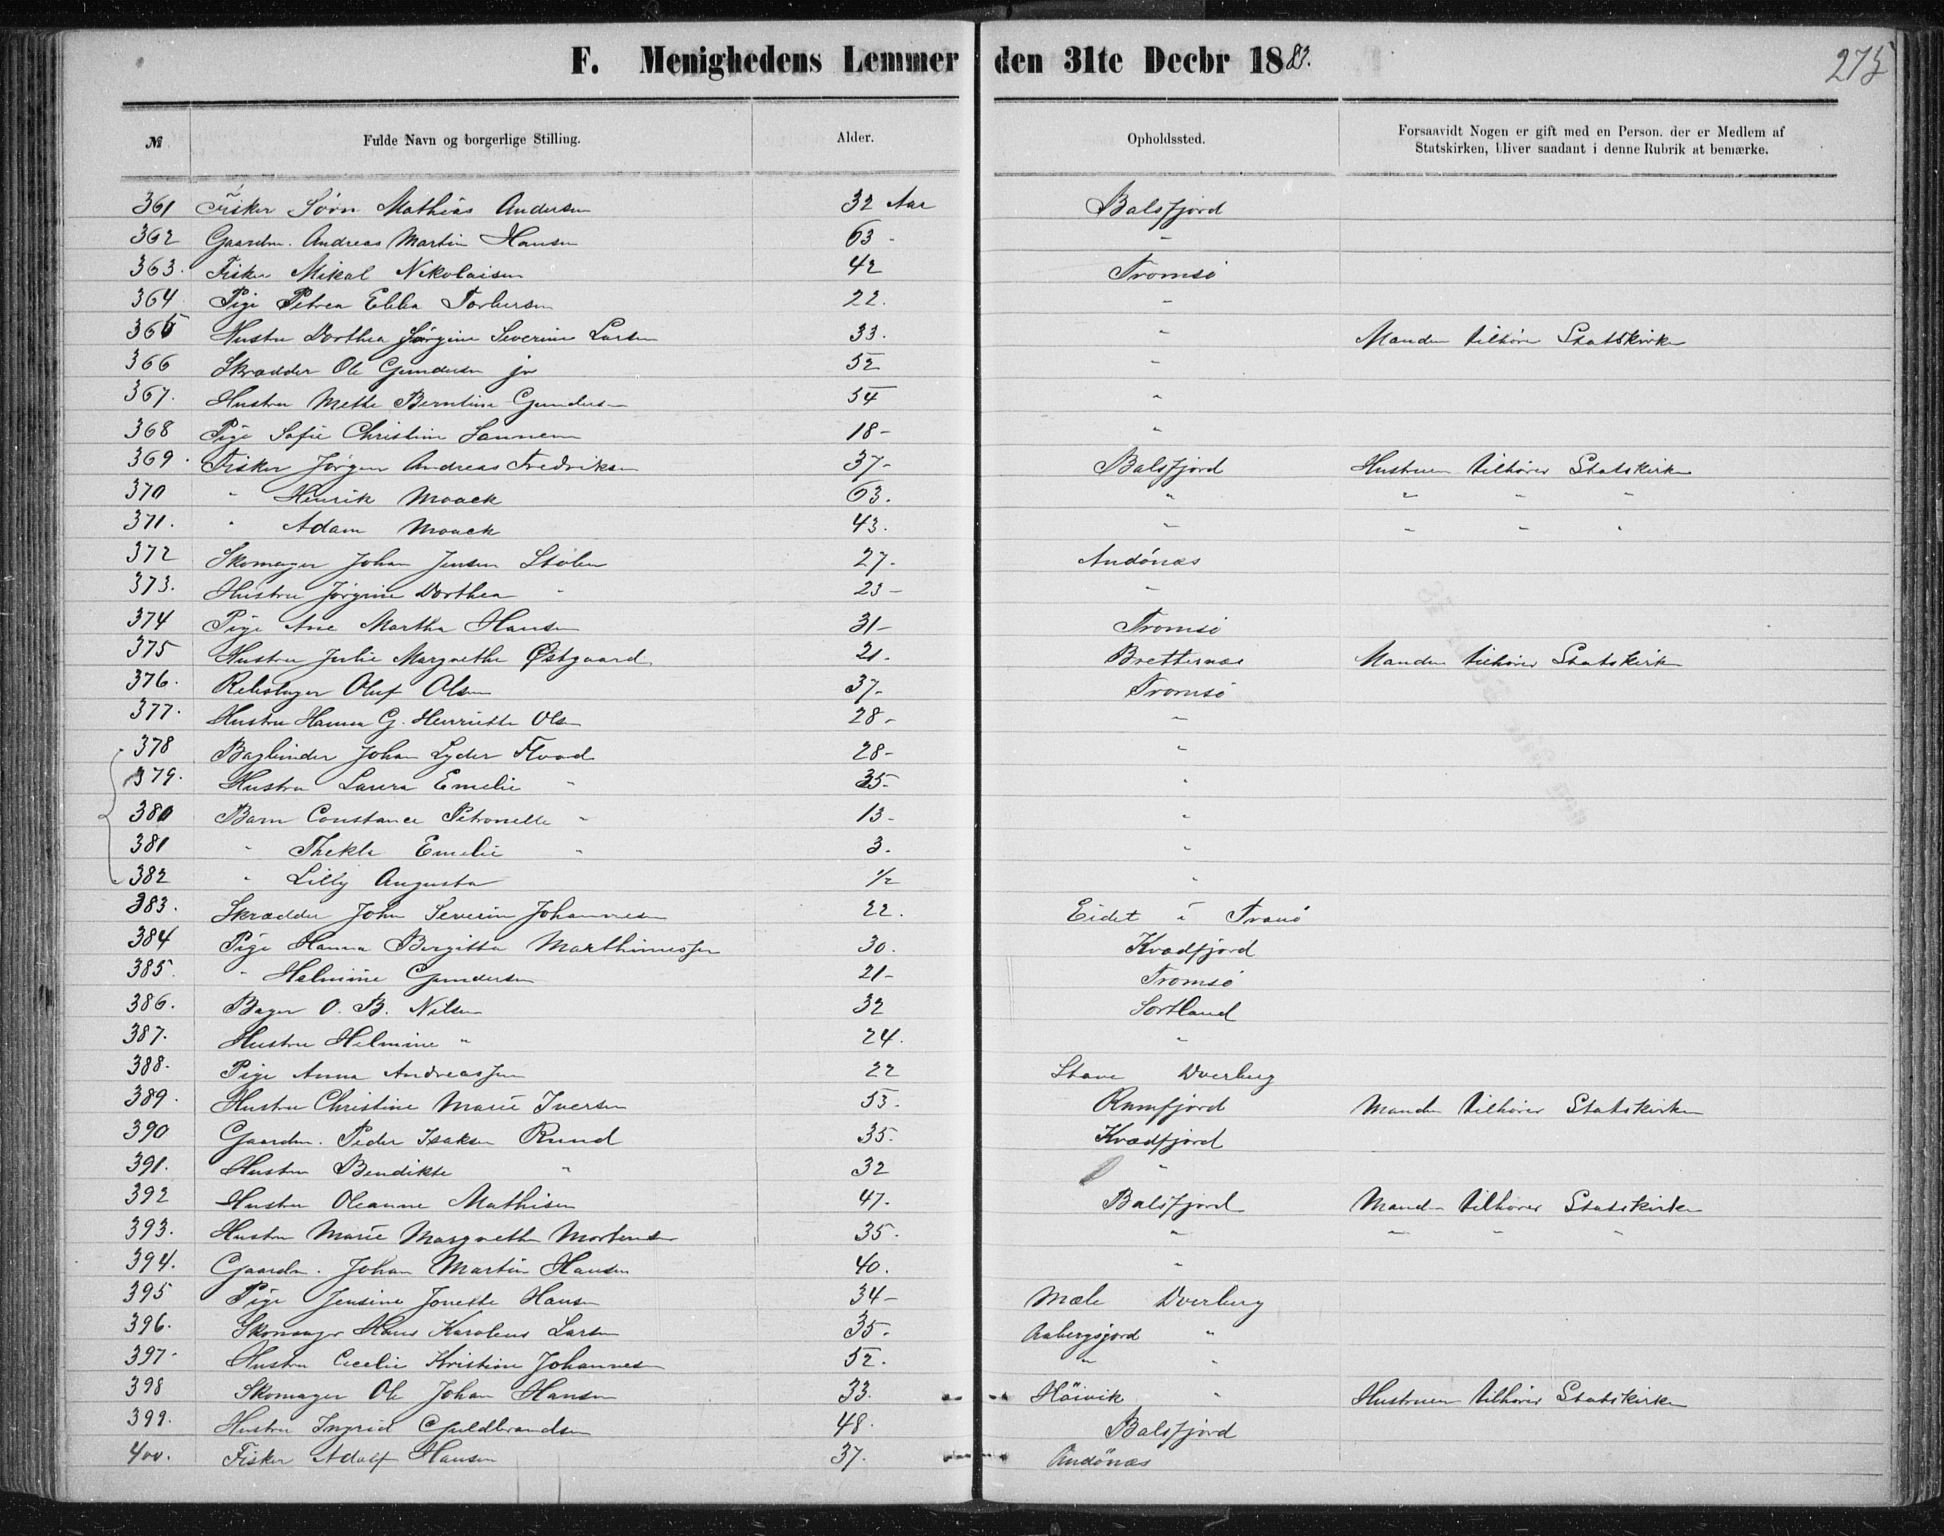 F. Menighedens Lemmer den 31te Decbr 1883.
275
№ Fulde Navn og borgerlige Stilling. Alder. Opholdssted. Forsaavidt Nogen er gift med en Person. der er Medlem af
Statskirken, bliver saadant i denne Rubrik at bemærke.
361 Fisker Sörn Mathias Andersen 32 Aar Balsfjord
362 Gaardm. Andreas Martin Hansen 63 - "
363. Fisker Mikal Nikolaisen 42 Tromsö
364 Pige Petrea Ebba Torbersen 22. "
365 Hustru Dorthea Jørgine Severine Larsen 33. " Manden tilhører Statskirken
366 Skrædder Ole Gundersen jr 52 "
367. Hustru Mette Berntine Gundersen 54 "
368 Pige Sofie Christine 18- "
369. Fisker Jørgen Andreas Fredriksen 37- Balsfjord Hustruen tilhører Statskirken
370 " Henrik Moack 63. " " " "
371. " Adam Moack 43. " " " "
372 Skomager Johan Jensen Stølen 27. Andönæs
373. Hustru Jørgine Dorthea " 23- "
374 Pige Ane Martha Hansen 31- Tromsö
375 Hustru Julie Margrethe Østgaard 21. Brettesnæs Manden tilhører Statskirken
376. Rebslager Oluf Olsen 37- Tromsö
377. Hustru Hanna G. Henriette Olsen 28- "
378 Bagbinder Johan Lyder Flood 28- "
379. Hustru Laura Emelie " 35- "
380 Barn Constance Petronelle " 13- "
381 " Thekla Emelie " 3. "
382 " Lilly Augusta 1/2 "
383. Skrædder John Severin Johannesen 22. Eidet i Tranö
384 Pige Hanna Bergitta Marthinessen 30. Kvædfjord
385. " Helmine Gundersen 21- Tromsö
386. Bager O. B. Nilsen 32 Sortland
387. Hustru Helmine " 24. "
388. Pige Anna Andreassen 22 Stave Dverberg
389. Hustru Christine Marie Iversen 53. Manden tilhører Statskirken
390 Gaardm. Peder Isaksen Rund 35. Kvædfjord
391. Hustru Bendikte " 32 "
392 Hustru Oleanne Mathisen 47. Balsfjord Manden tilhører Statskirken
393. Hustru Marie Margrethe Mortensen 35. " " " "
394. Gaardm. Johan Martin Hansen 40. "
395 Pige Jensine Jonette Hansen 34- Mæle Dverberg
396. Skomager Hans Karolius Larsen 35. Aabergsjord "
397- Hustru Cecelie Kristine Johannesen 52. " "
398 Skomager Ole Johan Hansen 33. Höivik " Hustruen tilhører Statskirken
399. Hustru Ingrid Guldbrandsen 48. Balsfjord
400. Fisker Adolf Hansen 37. Andönæs